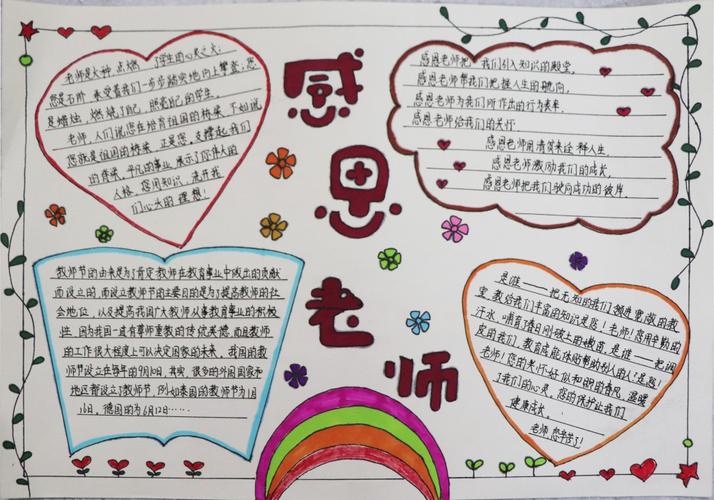 感恩老师
老师是火种,点燃了学生的心灵之火;
您是石阶,承受着我们一步步踏实地向上攀登;您
是蜡烛,燃烧了自己,照亮的学生。
老师,人们说您在培育祖国的栋梁,不如说
您就是祖国的栋梁。正是您,支撑起我们
的脊梁。平凡的事业,展示了你伟大的
人格,您用知识,
们心头的理想!
感恩老师把我们引入知识的殿堂。
感恩老师帮我们把握人生的航向。
感恩老师为我们所作出的行为表率。
感恩老师给我们的关怀
感恩老师用清贫来诠释人生
感恩老师激励我们的成长。
感恩老师把我们驶向成功的彼岸。
教师节的由来是为了肯定教师在教育事业中做出的贡献
而设立的,而设立教师节的主要目的是为了提高教师的社
会地位,以及提高我国广大教师从事教育事业的积极
性,因为我国一直有尊师重教的传统美德,而且教师
的工作很大程度上可以决定国家的未来,我国的教
师节设立在每年的9月10日,其实,很多的外国国家和
地区都设立了教师节,例如泰国的教师节为1月
16日,德国的为6月12日……
是谁——把无知的我们领进宽敞的教
室,教给我们丰富的知识是您!老师!您用辛勤的
汗水,哺育了春日刚破土的嫩苗,是谁——把调
皮的我们,教育成能体贴帮助别人的人?是您!
老师!您的关怀好似和煦的春风,温暖
了我们的心灵,您的保护让我们
健康成长。
老师,您辛苦了!